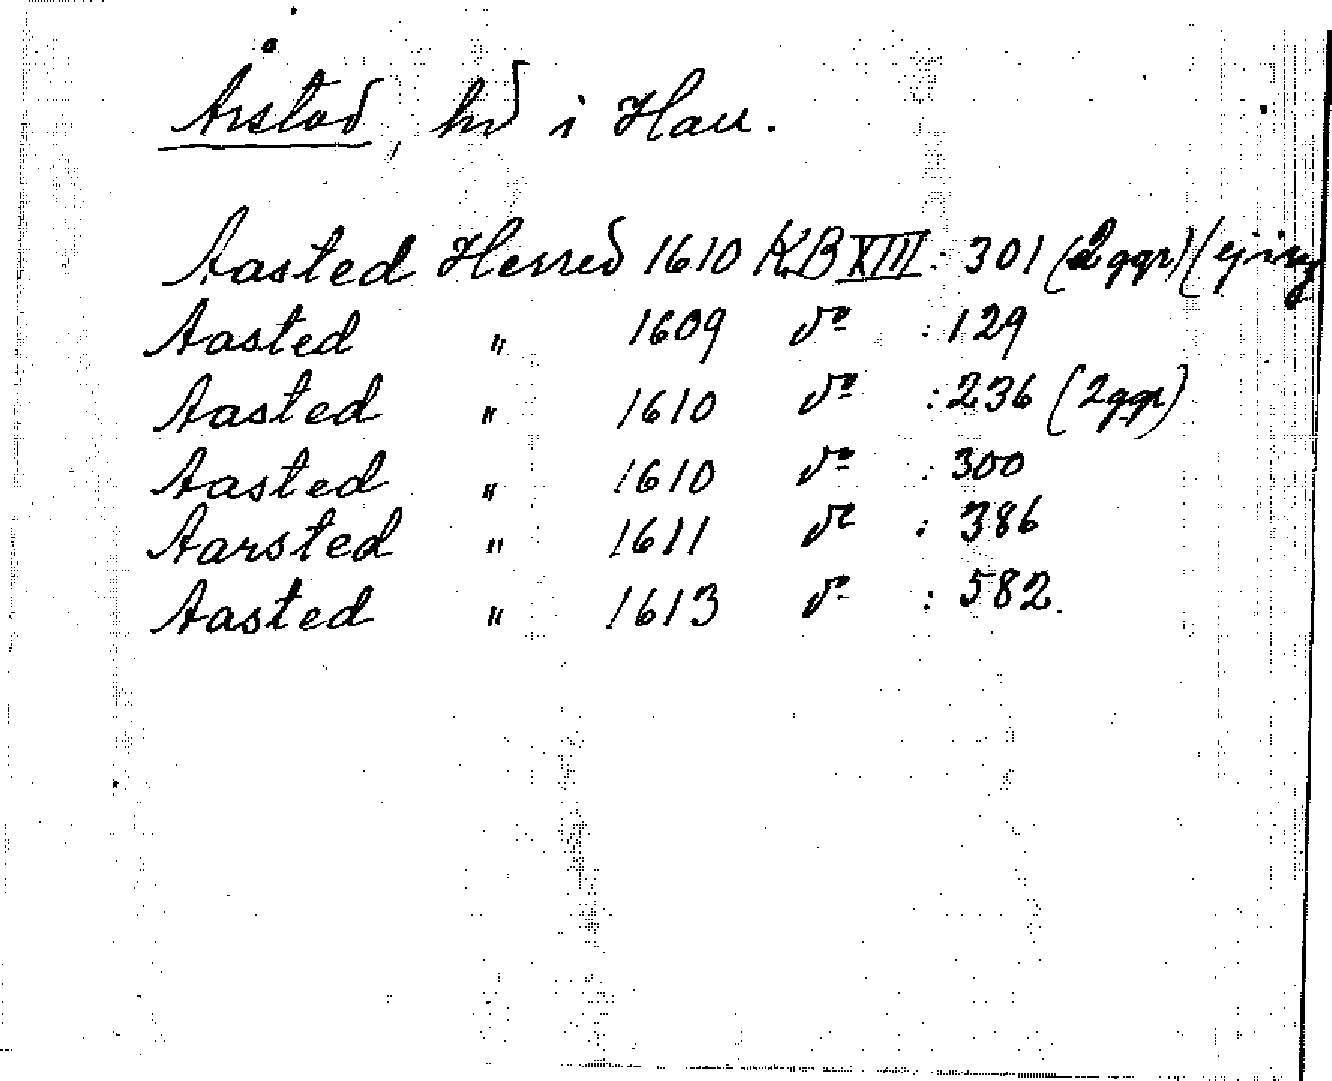 Årstad, hd i Hall.
Aasted Herred 1610 KB XIII: 301 (2 ggr) (ej i
Aasted " 1609 do : 129
Aasted " 1610 do : 236 (2 ggr)
Aasted " 1610 do : 300
Aarsted " 1611 do : 386
Aasted " 1613 do : 582.